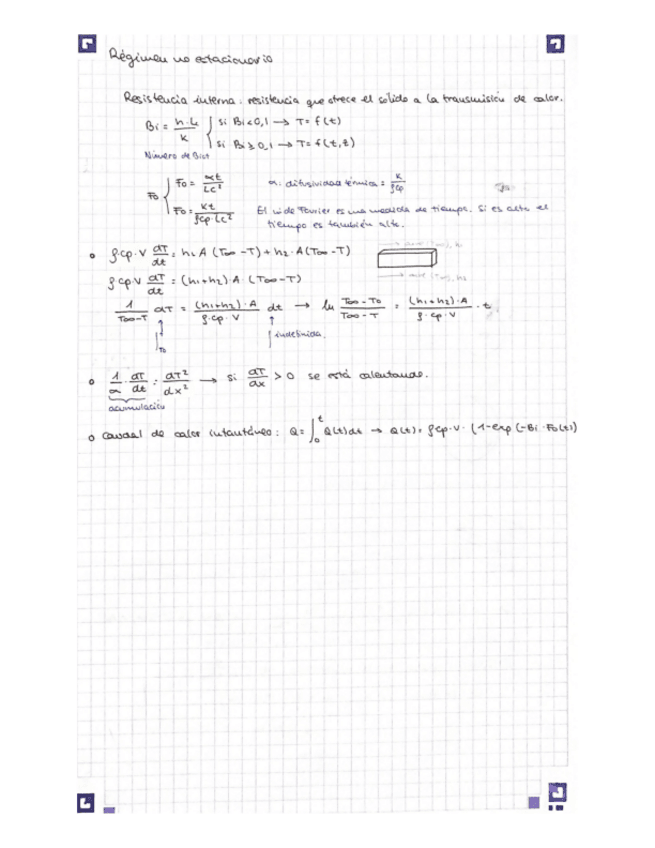 Régimen no estacionario
Resistencia interna: resistencia que ofrece el sólido a la transmisión de calor.
Bi = h·Lc / k { si Bi<0,1 → T= f(t)
si Bi ≥ 0,1 → T= f(t,z)
Número de Biot
Fo { Fo = αt / Lc² α: difusividad térmica = k / ρcp
Fo = kt / ρcp·Lc² El nº de Fourier es una medida de tiempo. Si es alto el
tiempo es también alto.
o ρ·cp·V dT/dt = h1 A (T∞ -T) + h2·A(T∞ -T)
ρcpV dT/dt = (h1+h2)·A (T∞-T)
1 / T∞-T dT = (h1+h2)·A / ρ·cp·V dt → ln T∞-T0 / T∞-T = (h1+h2)·A / ρ·cp·V · t
T0 indefinida.
o 1/α · dT/dt = dT²/dx² → si dT/dx > 0 se está calentando.
acumulación
o Caudal de calor instantáneo: Q= ∫₀ᵗ Q(t)dt → Q(t)= ρcp·V· (1-exp(-Bi·Fo(t))